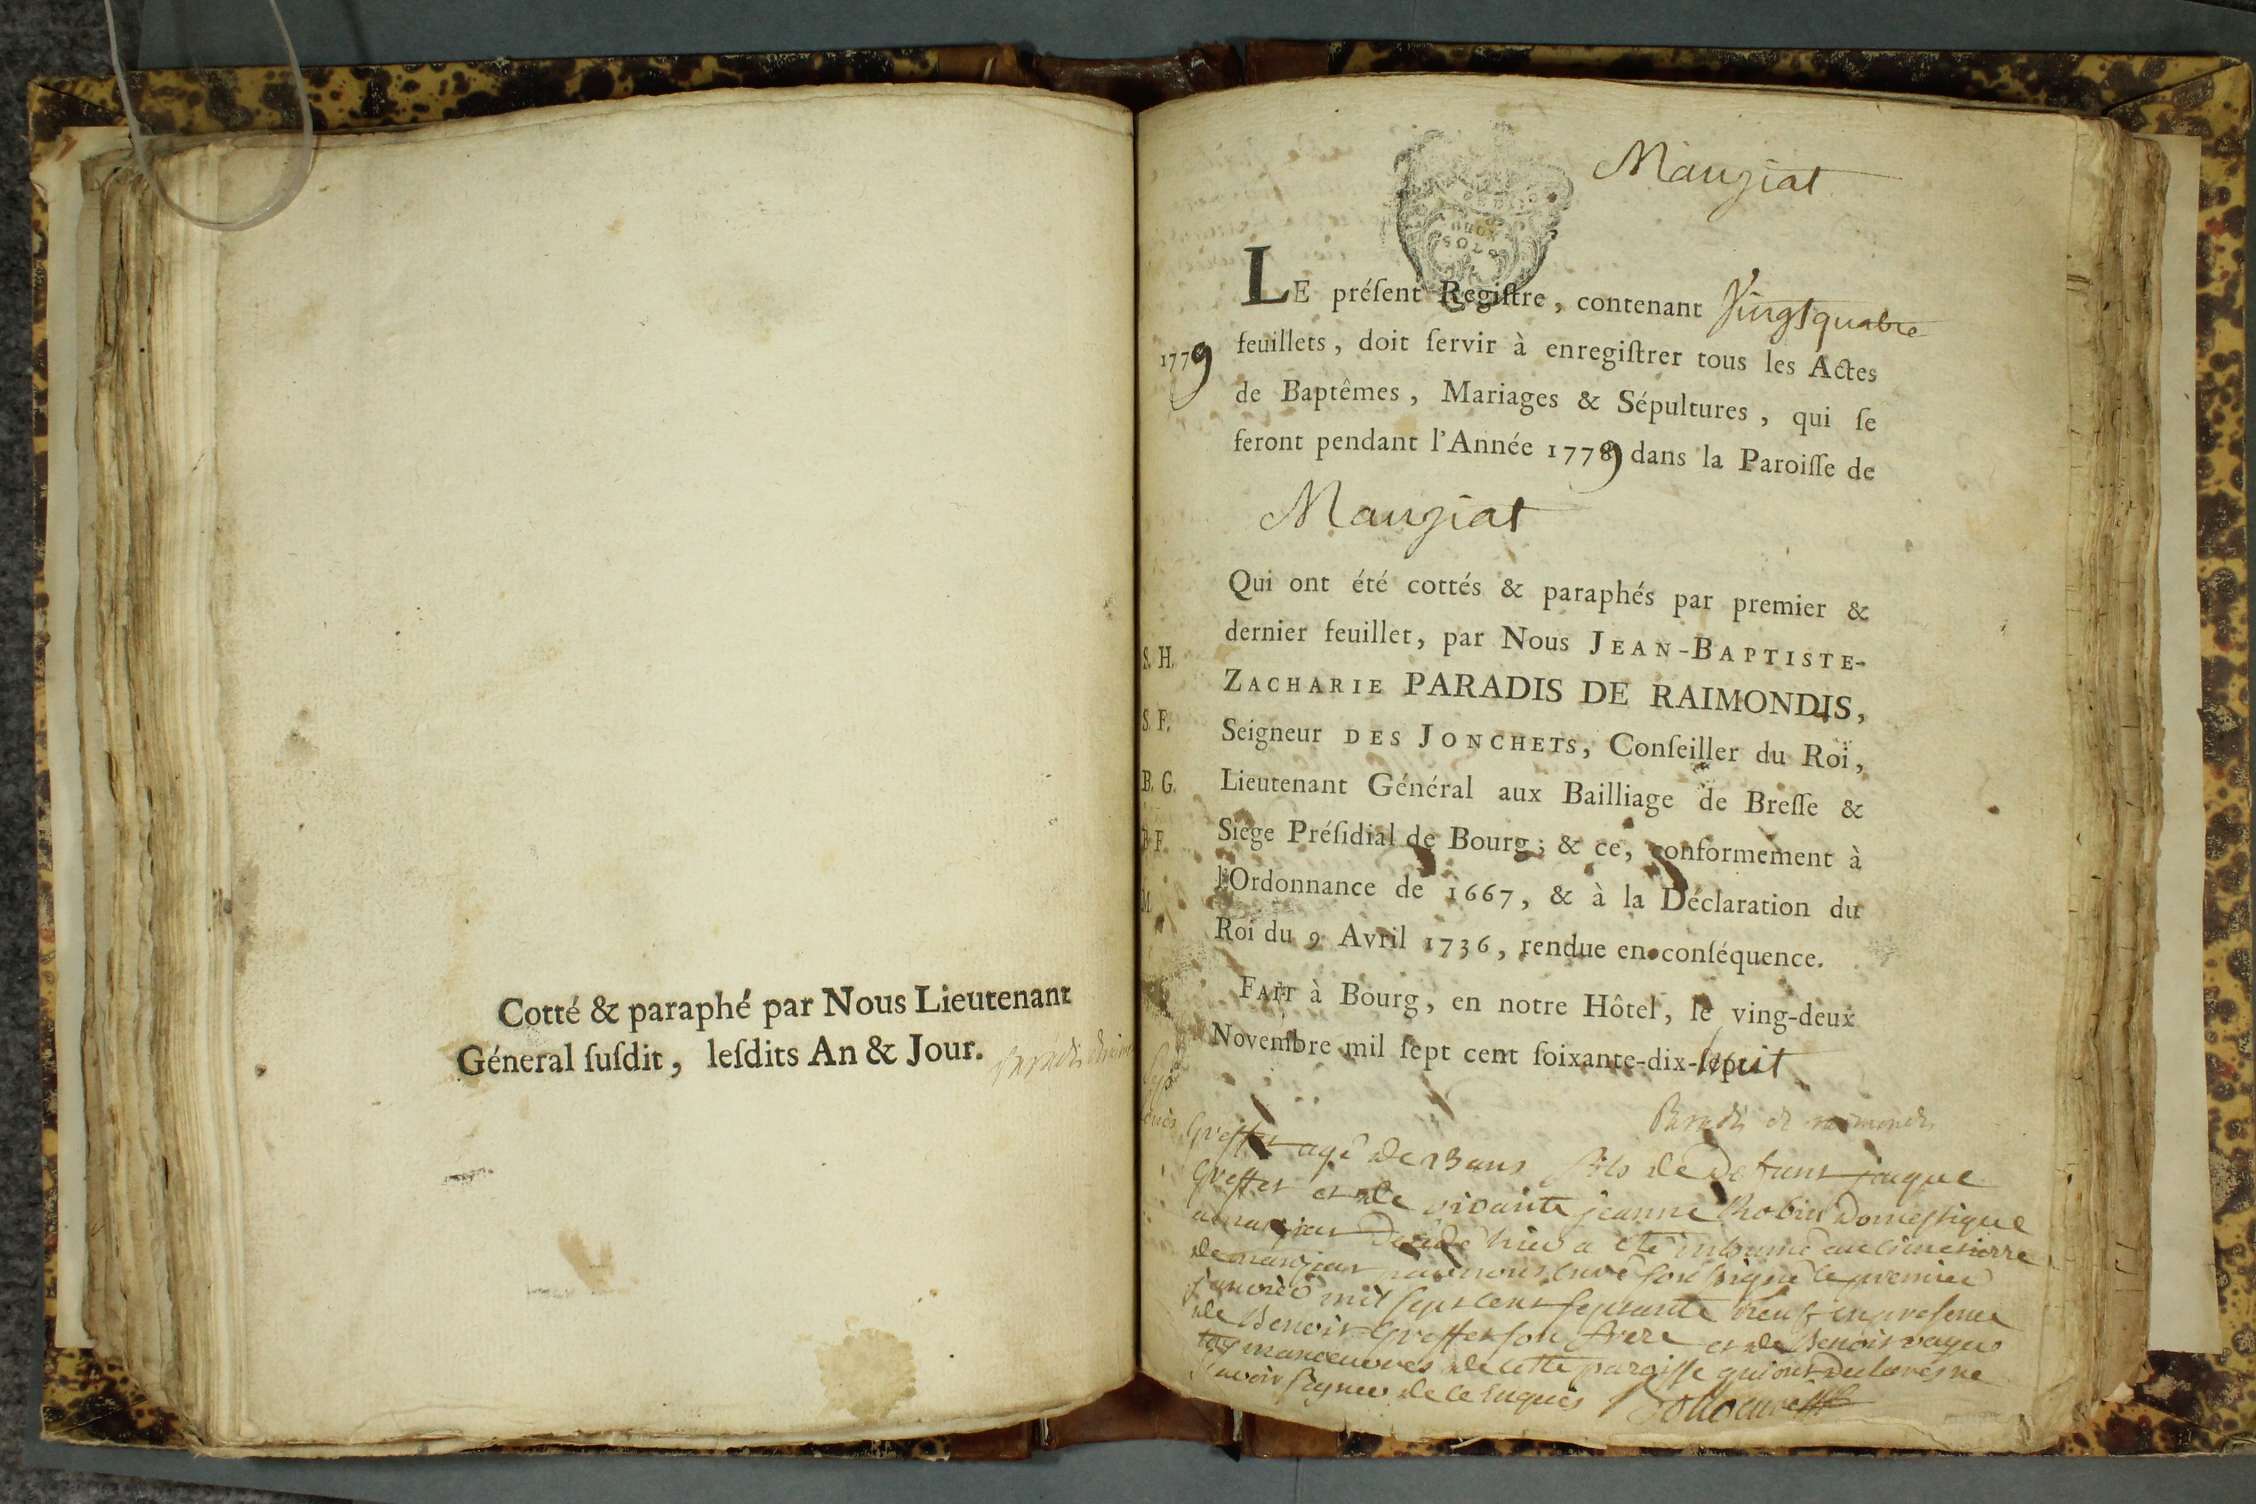 Cotté & paraphé par Nous Lieutenant
Géneral ſuſdit, leſdits An & Jour.
Manziat
DEUX
SOLS
LE préſent Regiſtre, contenant Vingt quatre
1779
feuillets, doit ſervir à enregiſtrer tous les Actes
de Baptêmes, Mariages & Sépultures, qui ſe
feront pendant l'Année 1779 dans la Paroiſſe de
Manziat
Qui ont été cottés & paraphés par premier &
dernier feuillet, par Nous JEAN-BAPTISTE-
S. H.
ZACHARIE PARADIS DE RAIMONDIS,
S. F.
Seigneur DES JONCHETS, Conſeiller du Roi,
B. G.
Lieutenant Général aux Bailliage de Breſſe &
B. F.
Siège Préſidial de Bourg; & ce, conformement à
M
l'Ordonnance de 1667, & à la Déclaration du
Roi du 9 Avril 1736, rendue en conſéquence.
FAIT à Bourg, en notre Hôtel, le ving-deux
Novembre mil ſept cent ſoixante-dix-huit
Paradis de raimondis
Greffet agé de 23 ans fils de defunt jaque
Greffet et de vivante jeanne Robin domestique
a manziat décédé hier a été inhumé au cimetierre
de manziat par nous curé soussigné le premier
janvier mil sept cent septante neuf en presence
de Benoit Greffet son frere et de Benoit
manoeuvres de cette paroisse qui ont declaré ne
sçavoir signer de ce enquis